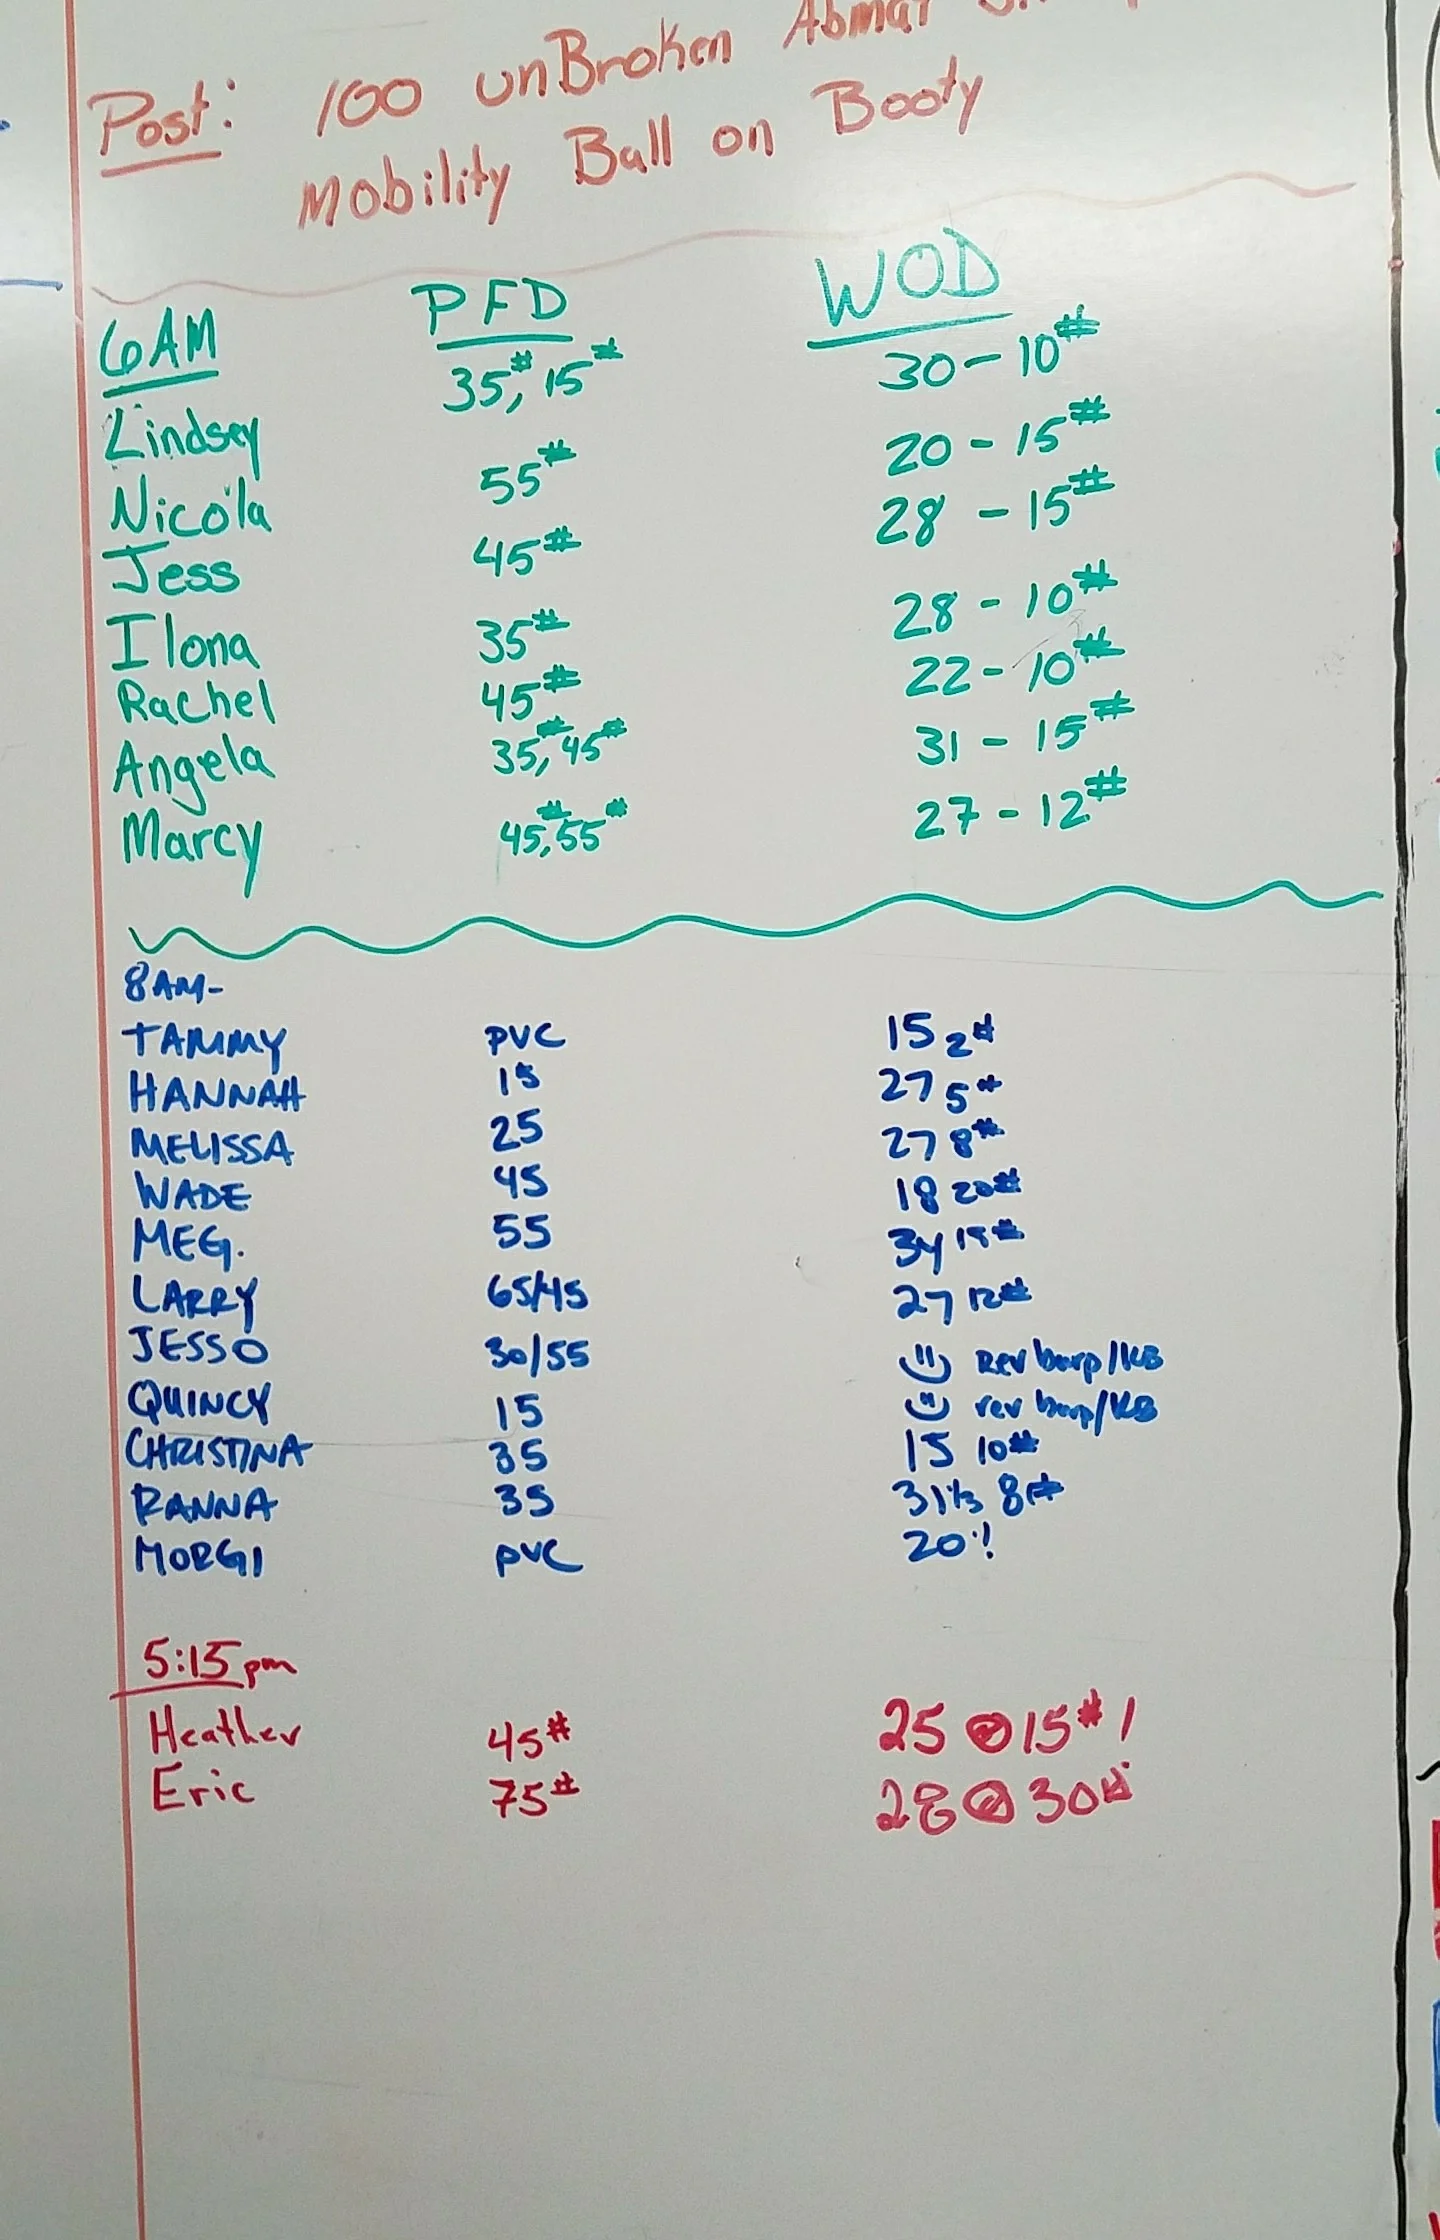 Post: 100 unBroken Abmat
Mobility Ball on Booty
6AM PFD WOD
Lindsey 35#, 15# 30 - 10#
Nicola 55# 20 - 15#
Jess 45# 28 - 15#
Ilona 35# 28 - 10#
Rachel 45# 22 - 10#
Angela 35#, 45# 31 - 15#
Marcy 45#, 55# 27 - 12#
8AM-
TAMMY PVC 15 2#
HANNAH 15 27 5#
MELISSA 25 27 8#
WADE 45 18 20#
MEG. 55 34 15#
LARRY 65/45 27 12#
JESSO 30/55 Rev burp/KB
QUINCY 15 rev burp/KB
CHRISTINA 35 15 10#
RANNA 35 31 1/3 8#
MORGI PVC 20!
5:15pm
Heather 45# 25 @ 15# !
Eric 75# 28 @ 30#